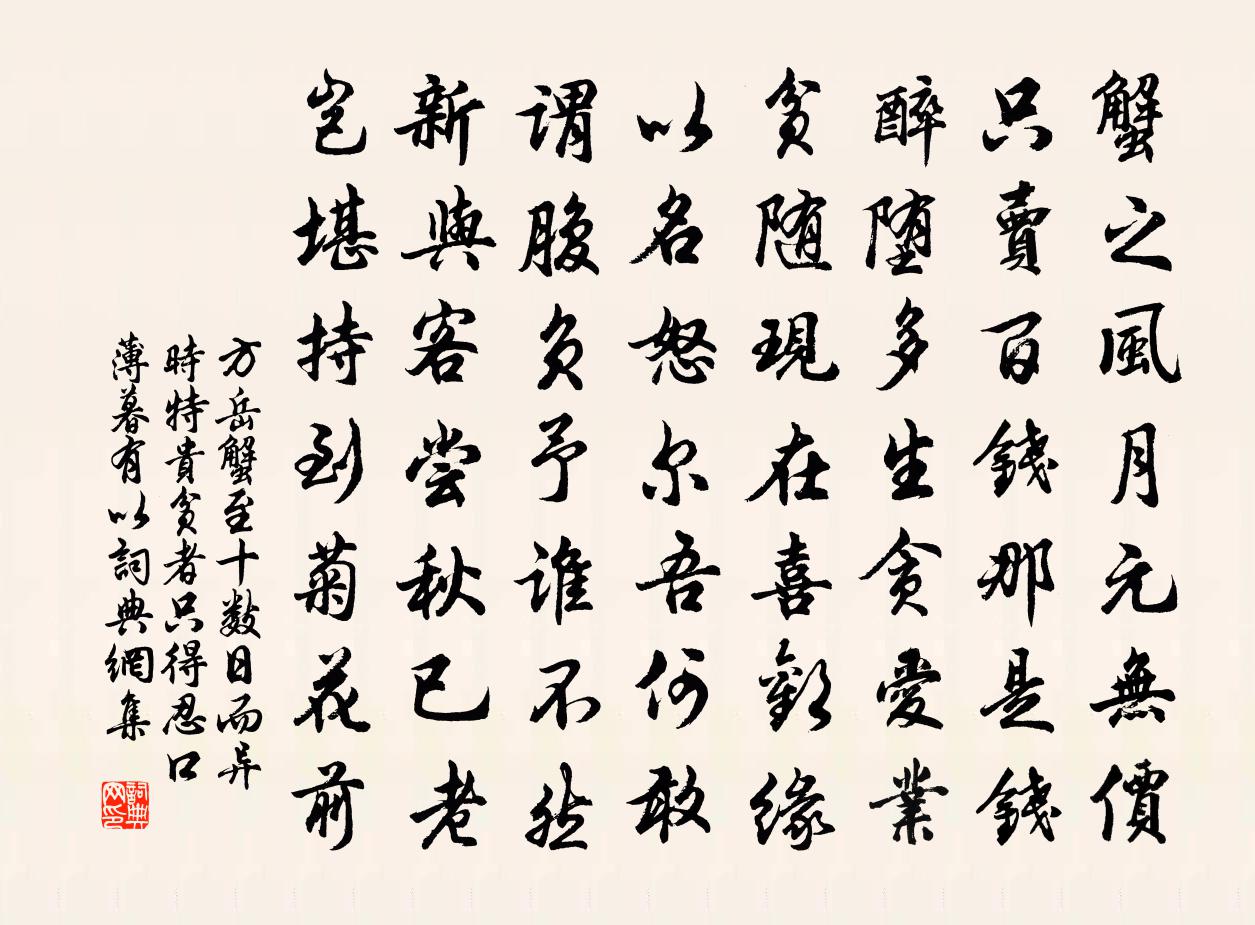 蟹之風月元無價
只賣百錢那是錢
醉堕多生貪愛業
貧随現在喜歡緣
以名怒尔吾何敢
謂腹負予誰不然
新與客尝秋已老
岂堪持到菊花前
方岳蟹至十数日而异
時特貴貧者只得忍口
薄暮有以詞典網集
詞典网印